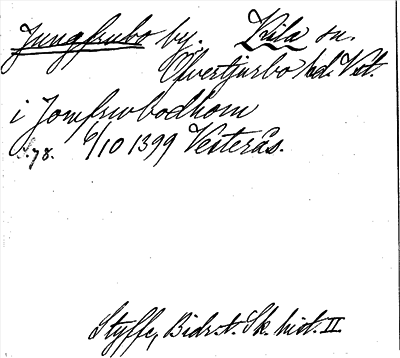 Jungfrubo by. Kila sn.
Öfvertjurbo hd. Vst.
i Jomfrwbodhom
S. 78. 6/10 1399 Vesterås.
Styffe, Bidr. t. Sk. hist. II